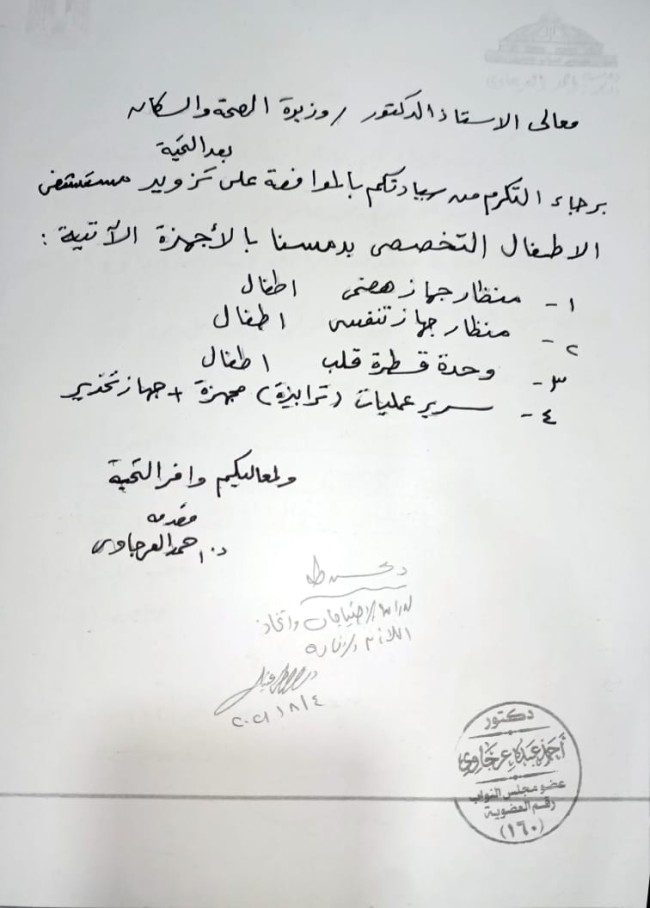 معالى الاستاذ الدكتور / وزيرة الصحة والسكان
بعد التحية
برجاء التكرم من سيادتكم بالموافقة على تزويد مستشفى
الاطفال التخصصى بدمسنا بالأجهزة الآتية :
١- منظار جهاز هضمى اطفال
٢- منظار جهاز تنفسى اطفال
٣- وحدة قسطرة قلب اطفال
٤- سرير عمليات (ترابيزة) مجهزة + جهاز تخدير
ولمعاليكم وافر التحية
مقدمه
د. احمد العرجاوى
د. محسن طه
الاحتياجات واتخاذ
اللازم والإفادة
٢٠٢١/٨/٤
دكتور
أحمد عبده عرجاوي
عضو مجلس النواب
رقم العضوية
(١٦٠)